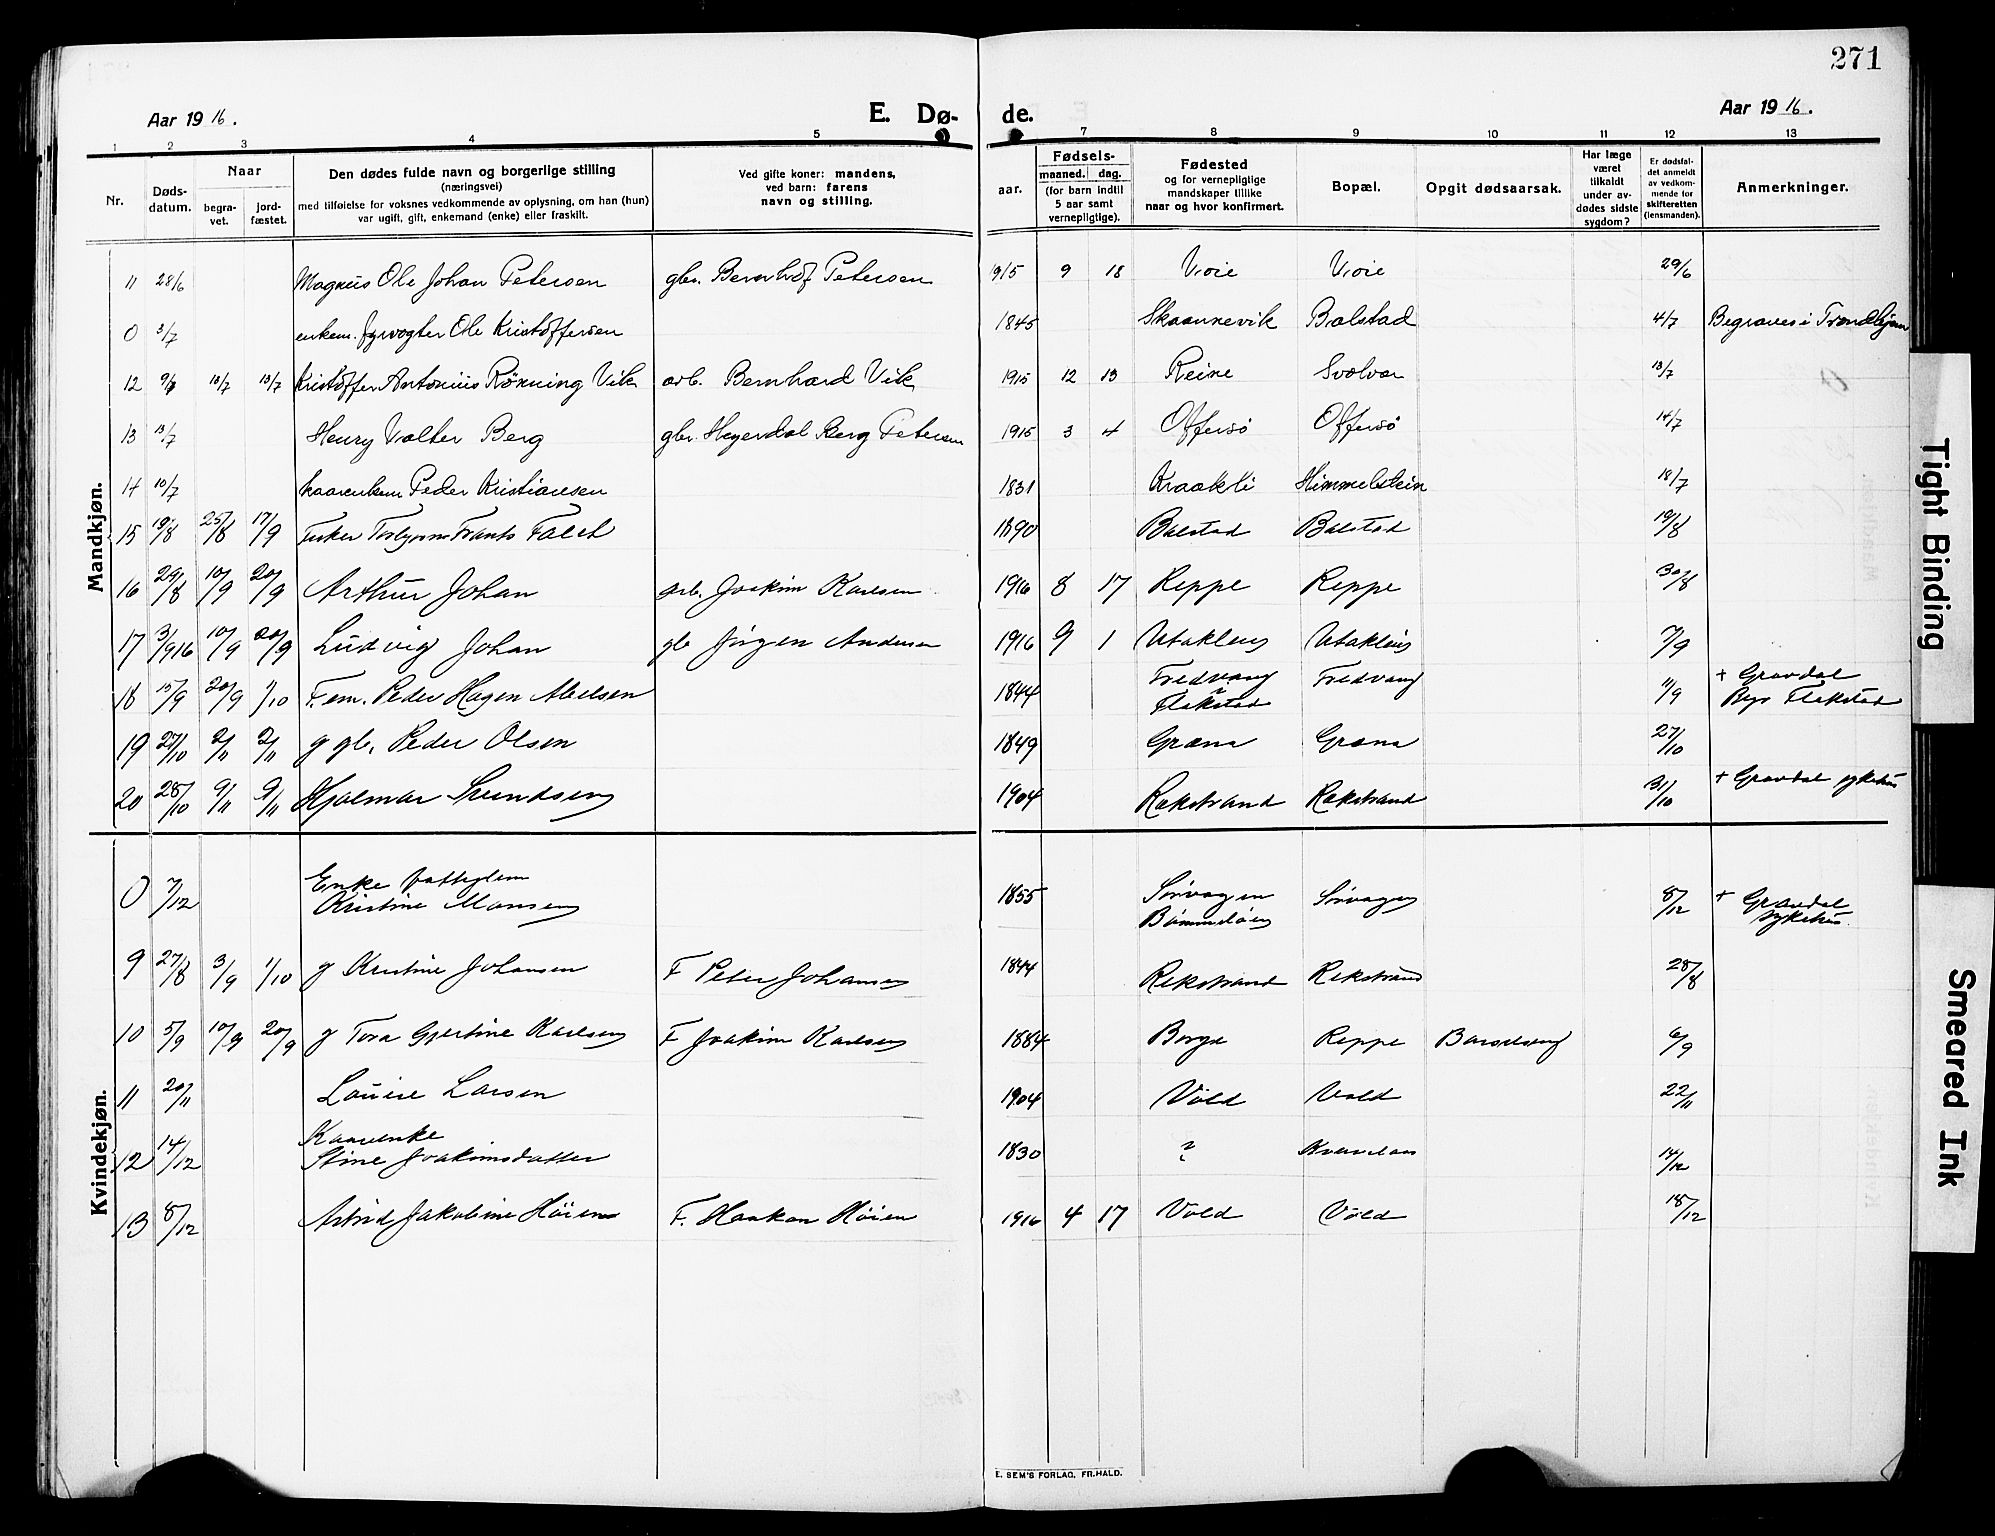 271
Aar 1916.
E. Dø-
de.
Aar 1916.
1 2 3 4 5 7 8 9 10 11 12 13
Nr.
Døds-
datum.
Naar
begra-
vet.
jord-
fæstet.
Den dødes fulde navn og borgerlige stilling
(næringsvei)
med tilføielse for voksnes vedkommende av oplysning, om han (hun)
var ugift, gift, enkemand (enke) eller fraskilt.
Ved gifte koner: mandens,
ved barn: farens
navn og stilling.
aar.
Fødsels-
maaned. dag.
(for barn indtil
5 aar samt
vernepligtige).
Fødested
og for vernepligtige
mandskaper tillike
naar og hvor konfirmert.
Bopæl.
Opgit dødsaarsak.
Har læge
været
tilkaldt
under av-
dødes sidste
sygdom?
Er dødsfal-
det anmeldt
av vedkom-
mende for
skifteretten
(lensmanden).
Anmerkninger.
Mandkjøn.
11 28/6 Magnus Ole Johan Petersen gbr. Bernhof Petersen 1915 9 18 Voie Voie 29/6
0 3/7 enkem. fyrvogter Ole Kristoffersen 1845 Skaannevik Balstad 4/7 Begraves i Trondhjem
12 9/7 13/7 13/7 Kristoffer Antonius Rönning Vik arb. Bernhard Vik 1915 12 13 Reine Svolvær 13/7
13 13/7 Henry Valter Berg gbr. Heyerdal Berg Petersen 1915 3 4 Offersö Offersö 14/7
14 10/7 kaarenkem Peder Kristiansen 1831 Kraakli Himmelstein 18/7
15 19/8 25/8 17/9 Fisker Torbjørn Frants Falch 1890 Balstad Balstad 19/8
16 29/8 10/9 20/9 Arthur Johan arb. Joakim Karlsen 1916 8 17 Reppe Reppe 30/8
17 3/9 16 10/9 20/9 Ludvig Johan gb Jörgen Andersen 1916 9 1 Utakleiv Utakleiv 7/9
18 15/9 20/9 1/10 F. em. Peder Hagen Abelsen 1844 Fredvang Flakstad Fredvang 11/9 + Gravdal
Begr Flakstad
19 27/10 2/11 2/11 g gb. Peder Olsen 1849 Grana Grana 27/10
20 28/10 9/11 9/11 Hjalmar Svendsen 1904 Rekstrand Rekstrand 31/10 + Gravdal sykehus
Kvindekjøn.
0 7/12 Enke fattiglem
Kristine Monsen 1855 Sørvagen Sørvagen 8/12 + Gravdal
sykehus.
9 27/8 3/9 1/10 g Kristine Johansen F Peter Johansen 1844 Rekstrand Rekstrand 28/8
10 5/9 10/9 20/9 g Tora Gjertine Karlsen F Joakim Karlsen 1884 Borge Reppe Barselseng 6/9
11 20/11 Louise Larsen 1904 Vold Vold 22/11
12 14/12 Kaarenke
Stine Joakimsdatter 1830 ? 14/12
13 8/12 Astrid Jakobine Höien F. Haakon Höien 1916 4 17 Vold Vold 18/12
E. SEM'S FORLAG, FR.HALD.
Tight Binding
Smeared Ink